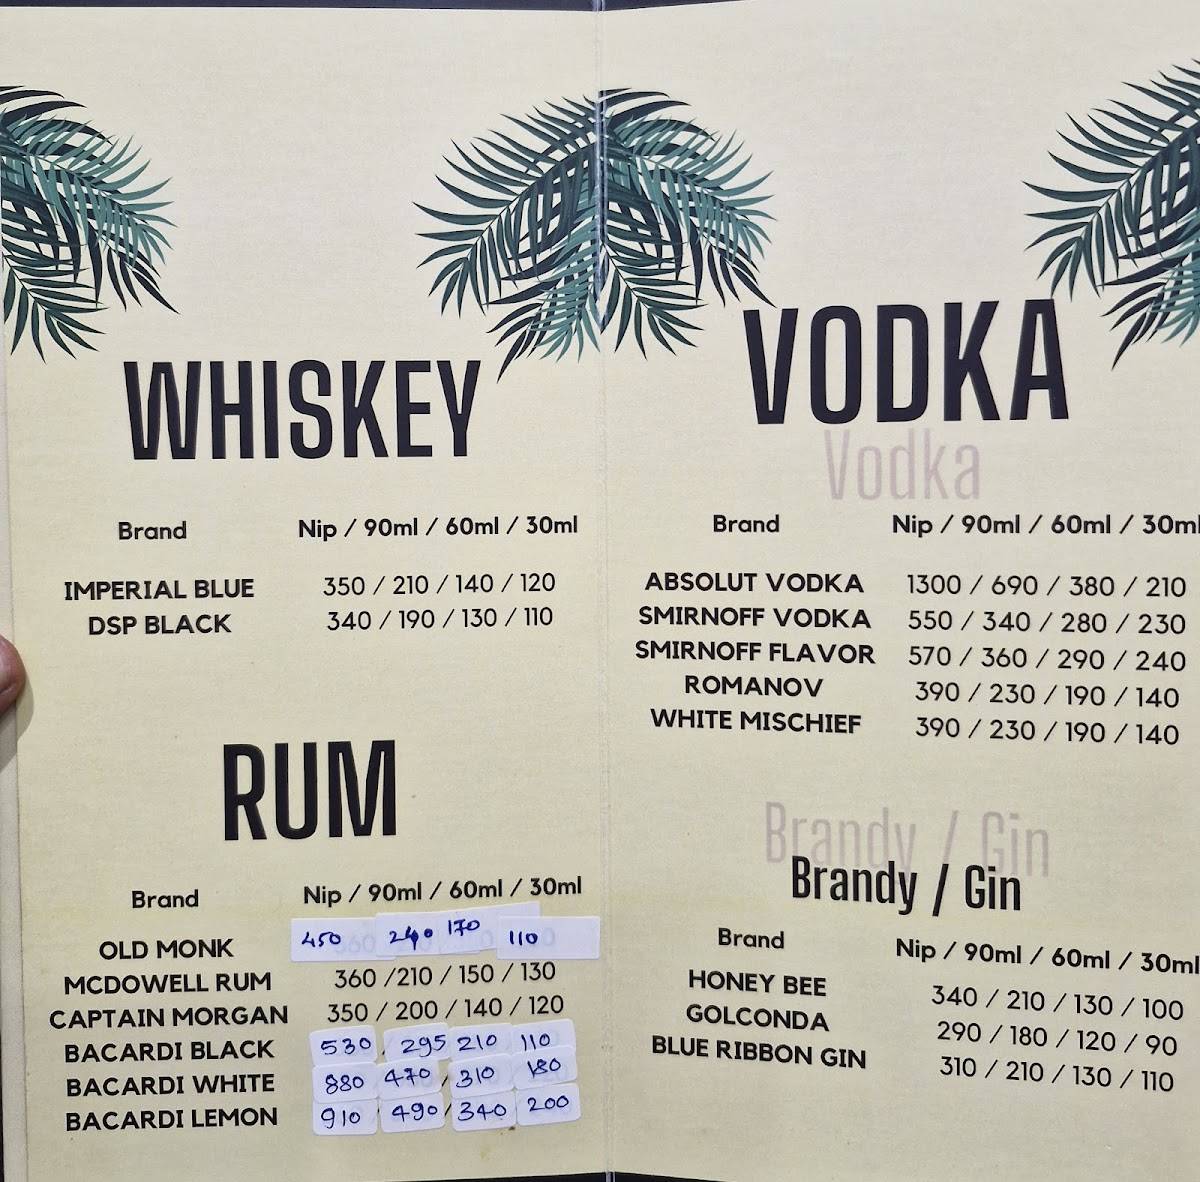 WHISKEY
Brand Nip / 90ml / 60ml / 30ml
IMPERIAL BLUE 350 / 210 / 140 / 120
DSP BLACK 340 / 190 / 130 / 110
RUM
Brand Nip / 90ml / 60ml / 30ml
OLD MONK 450 240 170 110
MCDOWELL RUM 360 /210 / 150 / 130
CAPTAIN MORGAN 350 / 200 / 140 / 120
BACARDI BLACK 530 295 210 110
BACARDI WHITE 880 470 / 310 180
BACARDI LEMON 910 490 / 340 200
VODKA
Vodka
Brand Nip / 90ml / 60ml / 30ml
ABSOLUT VODKA 1300 / 690 / 380 / 210
SMIRNOFF VODKA 550 / 340 / 280 / 230
SMIRNOFF FLAVOR 570 / 360 / 290 / 240
ROMANOV 390 / 230 / 190 / 140
WHITE MISCHIEF 390 / 230 / 190 / 140
Brandy / Gin
Brandy / Gin
Brand Nip / 90ml / 60ml / 30ml
HONEY BEE 340 / 210 / 130 / 100
GOLCONDA 290 / 180 / 120 / 90
BLUE RIBBON GIN 310 / 210 / 130 / 110